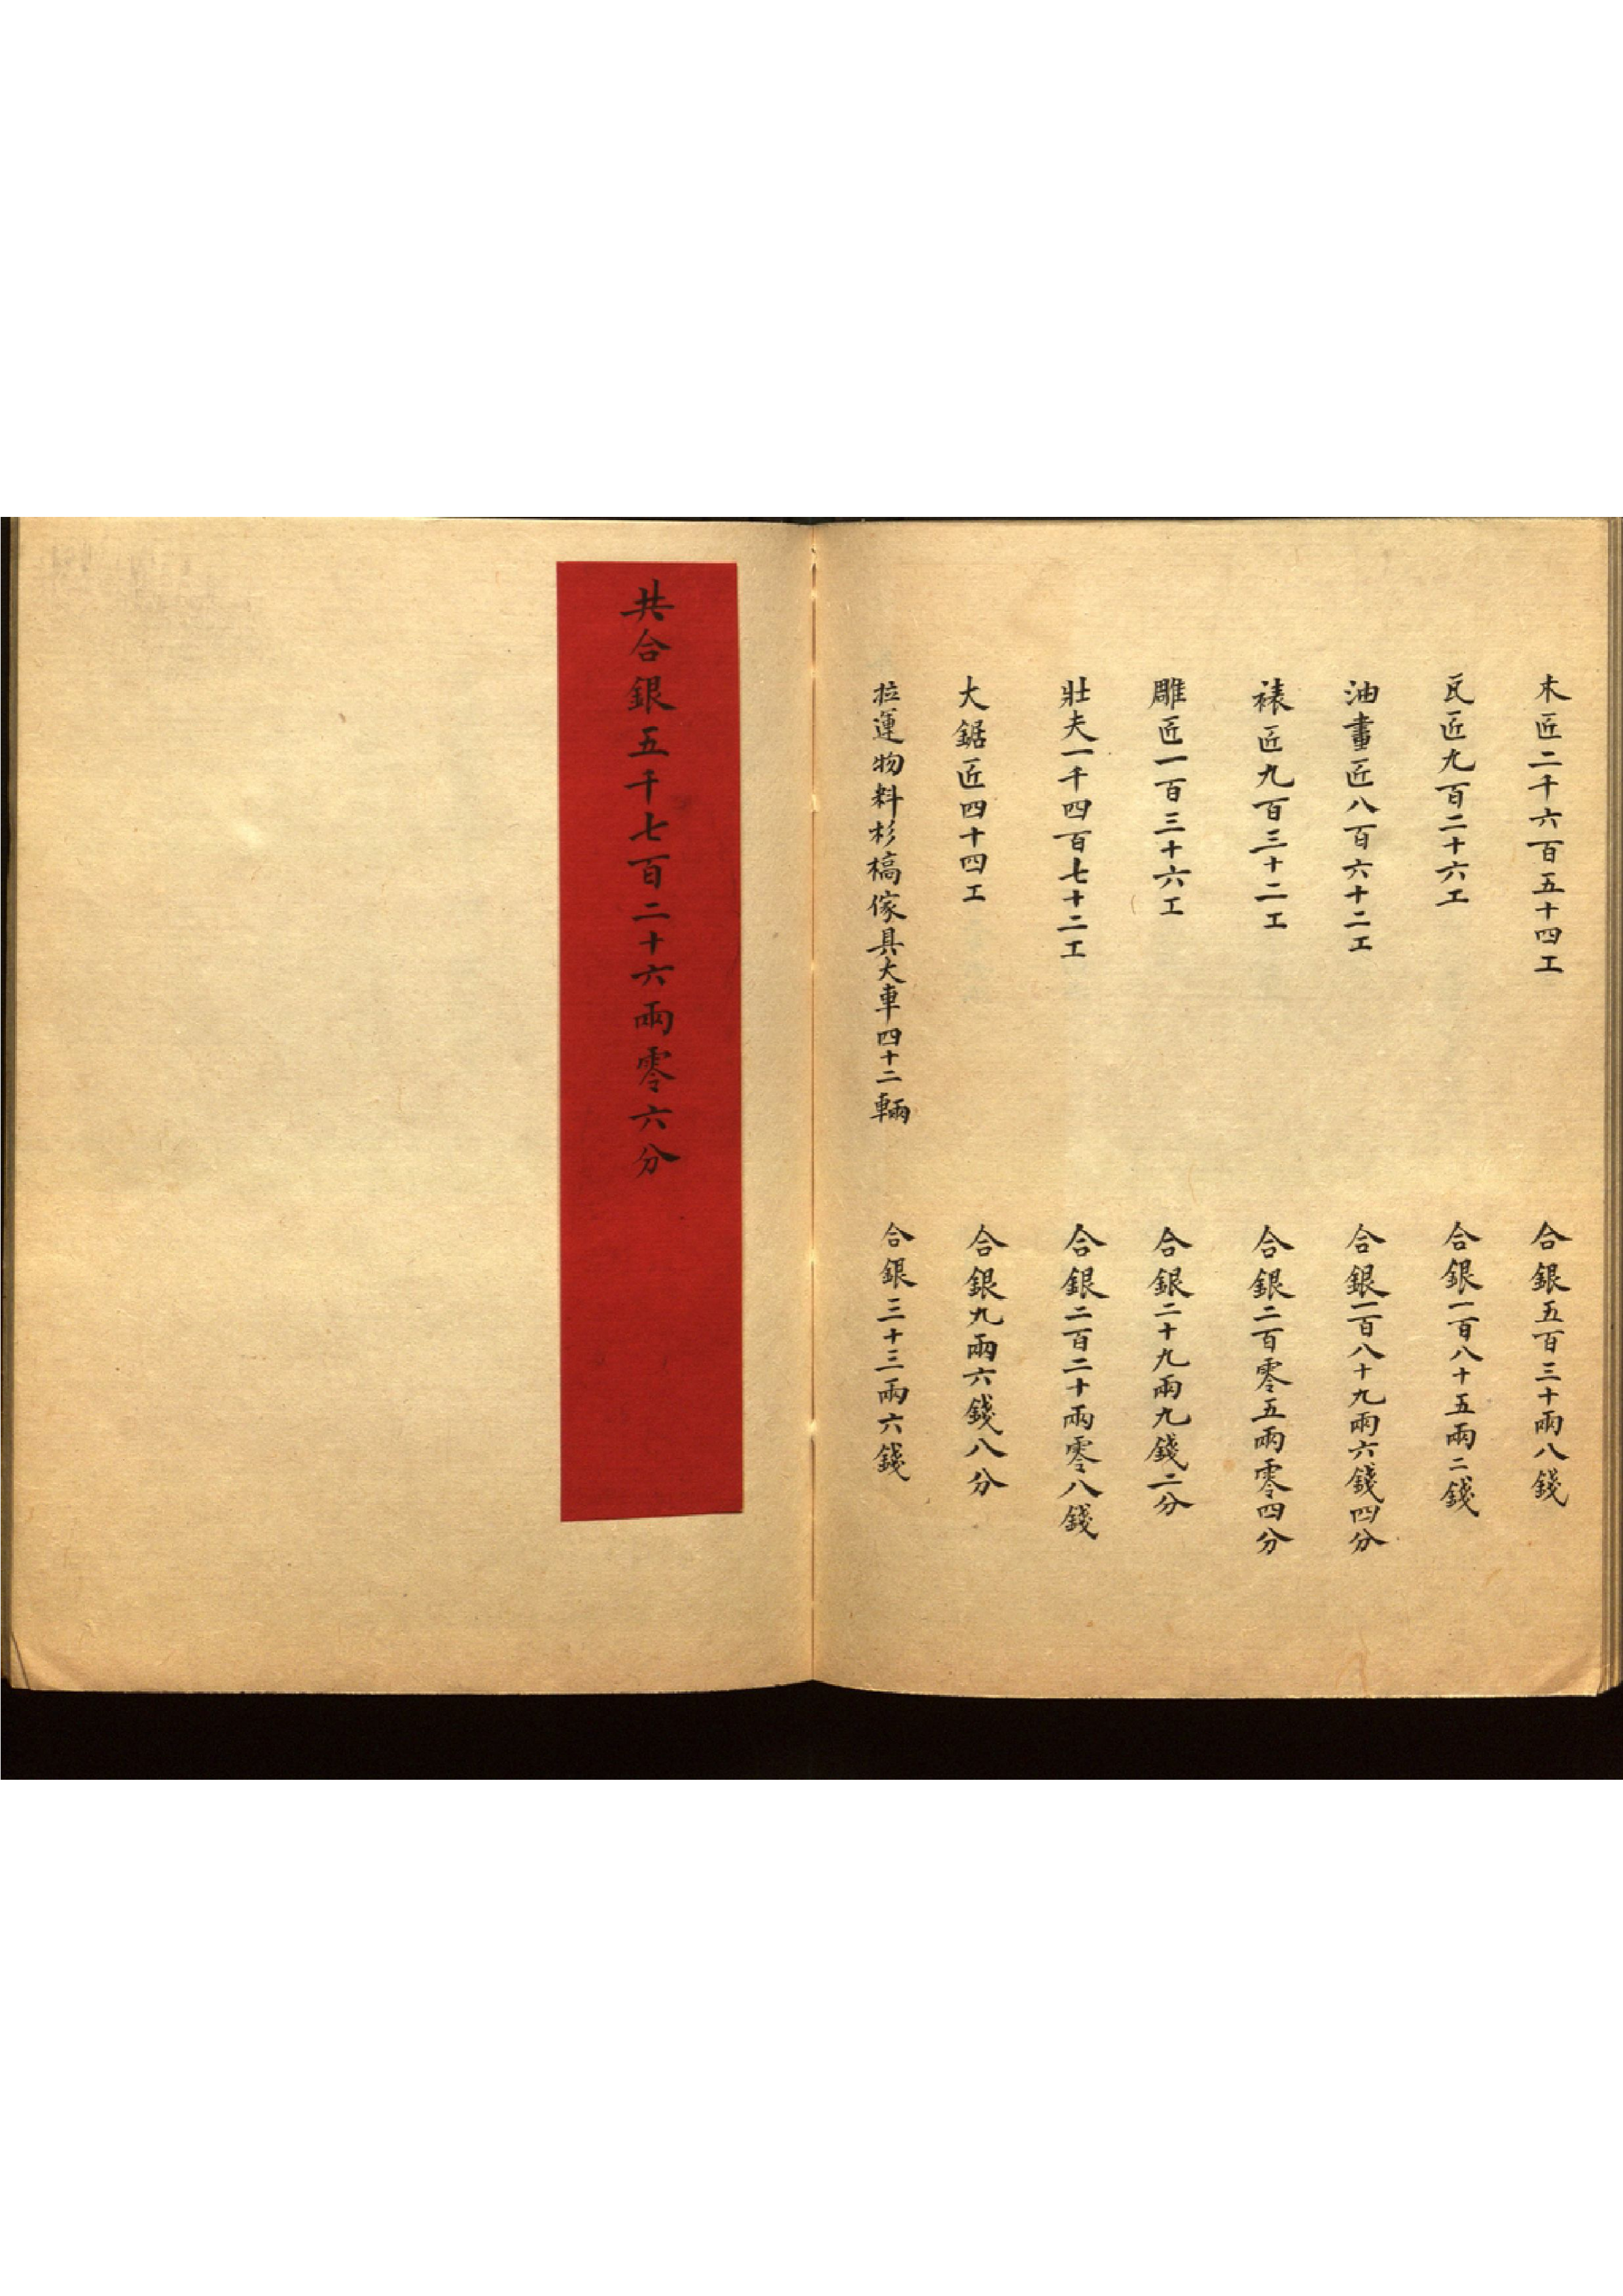 木匠二千六百五十四工 合銀五百三十兩八錢
瓦匠九百二十六工 合銀一百八十五兩二錢
油畫匠八百六十二工 合銀一百八十九兩六錢四分
裱匠九百三十二工 合銀二百零五兩零四分
雕匠一百三十六工 合銀二十九兩九錢二分
壯夫一千四百七十二工 合銀二百二十兩零八錢
大鋸匠四十四工 合銀九兩六錢八分
拉運物料杉槁傢具大車四十二輛 合銀三十三兩六錢
共合銀五千七百二十六兩零六分